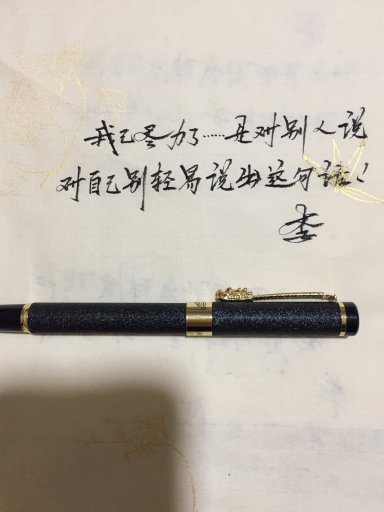 我已尽力了……是对别人说
对自己别轻易说出这句话！
李